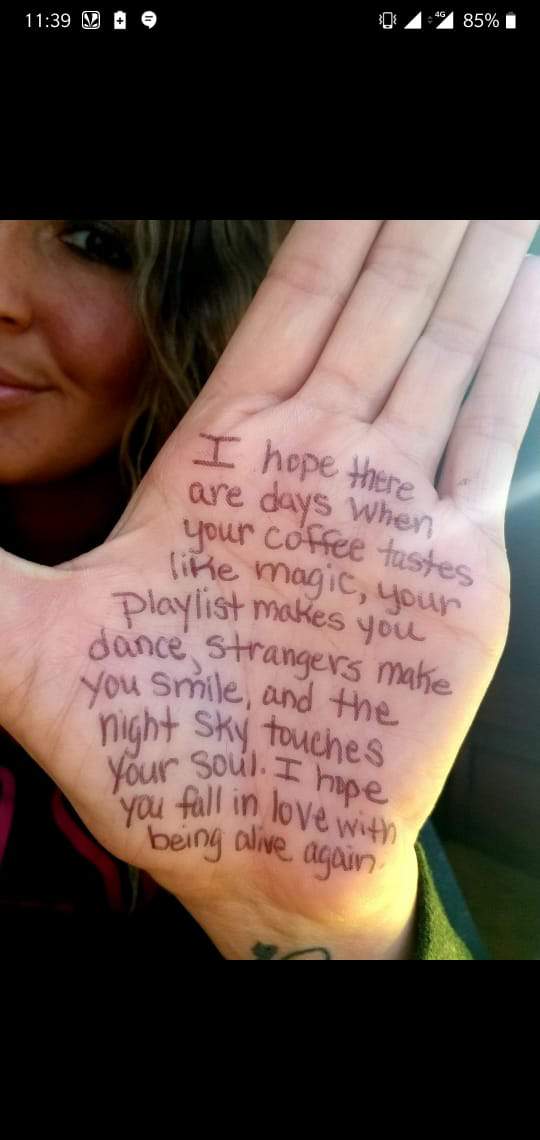 11:39
4G
85%
I hope there
are days when
your coffee tastes
like magic, your
playlist makes you
dance, strangers make
you smile, and the
night sky touches
your soul. I hope
you fall in love with
being alive again.